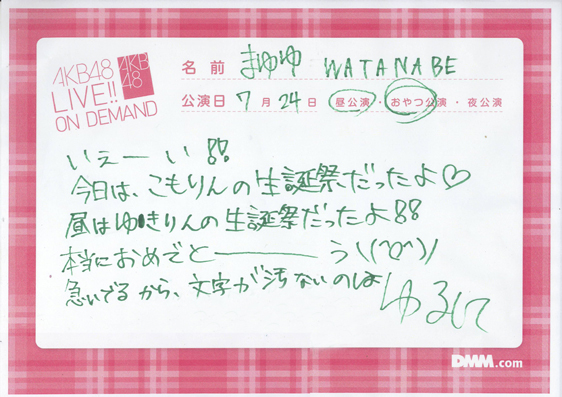 AKB48
LIVE!!
ON DEMAND
AKB
48
名前 まゆゆ WATANABE
公演日 7月24日 昼公演・おやつ公演・夜公演
いぇーい!!
今日は、こもりんの生誕祭だったよ♡
昼はゆきりんの生誕祭だったよ!!
本当におめでと———う\(^o^)/
急いでるから、文字が汚ないのは
ゆるして
DMM.com